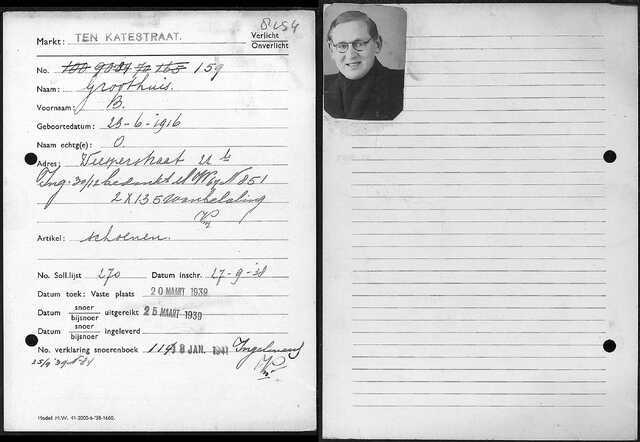 8454
Markt: TEN KATESTRAAT.
Verlicht
Onverlicht
No. 159
Naam: Groothuis.
Voornaam: B.
Geboortedatum: 23-6-1916
Naam echtg(e): O.
Adres: Weesperstraat 22
Ing. 30/12 bedankt No 851
2 X 135 wanbetaling
Artikel: schoenen.
No. Soll.lijst 270 Datum inschr. 27-9-'38
Datum toek: Vaste plaats 20 MAART 1939
Datum snoer bijsnoer uitgereikt 25 MAART 1939
Datum snoer bijsnoer ingeleverd
No. verklaring snoerenboek 8 JAN. 1941
25/9 '39
Model M.W. 41-2000-6-'38-1660.